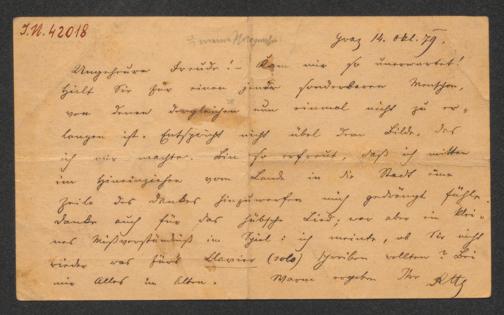 J.N. 42018
Graz 14. Okt. 79.
Ungeheure Freude! – Kam mir so unerwartet!
Hielt Sie für einen jener sonderbaren Menschen,
von denen dergleichen nun einmal nicht zu er-
langen ist. Entspricht nicht übel dem Bilde, das
ich mir machte. Bin so erfreut, daß ich mitten
im Hineinziehen vom Lande in die Stadt eine
Zeile des Dankes hinzuwerfen mich gedrängt fühle.
Danke auch für das hübsche Lied; war aber ein klei-
nes Mißverständniß im Spiel: ich meinte, ob Sie nicht
wieder was fürs Clavier (solo) schreiben wollten? Bei
mir Alles im Alten. Warm ergeben Ihr